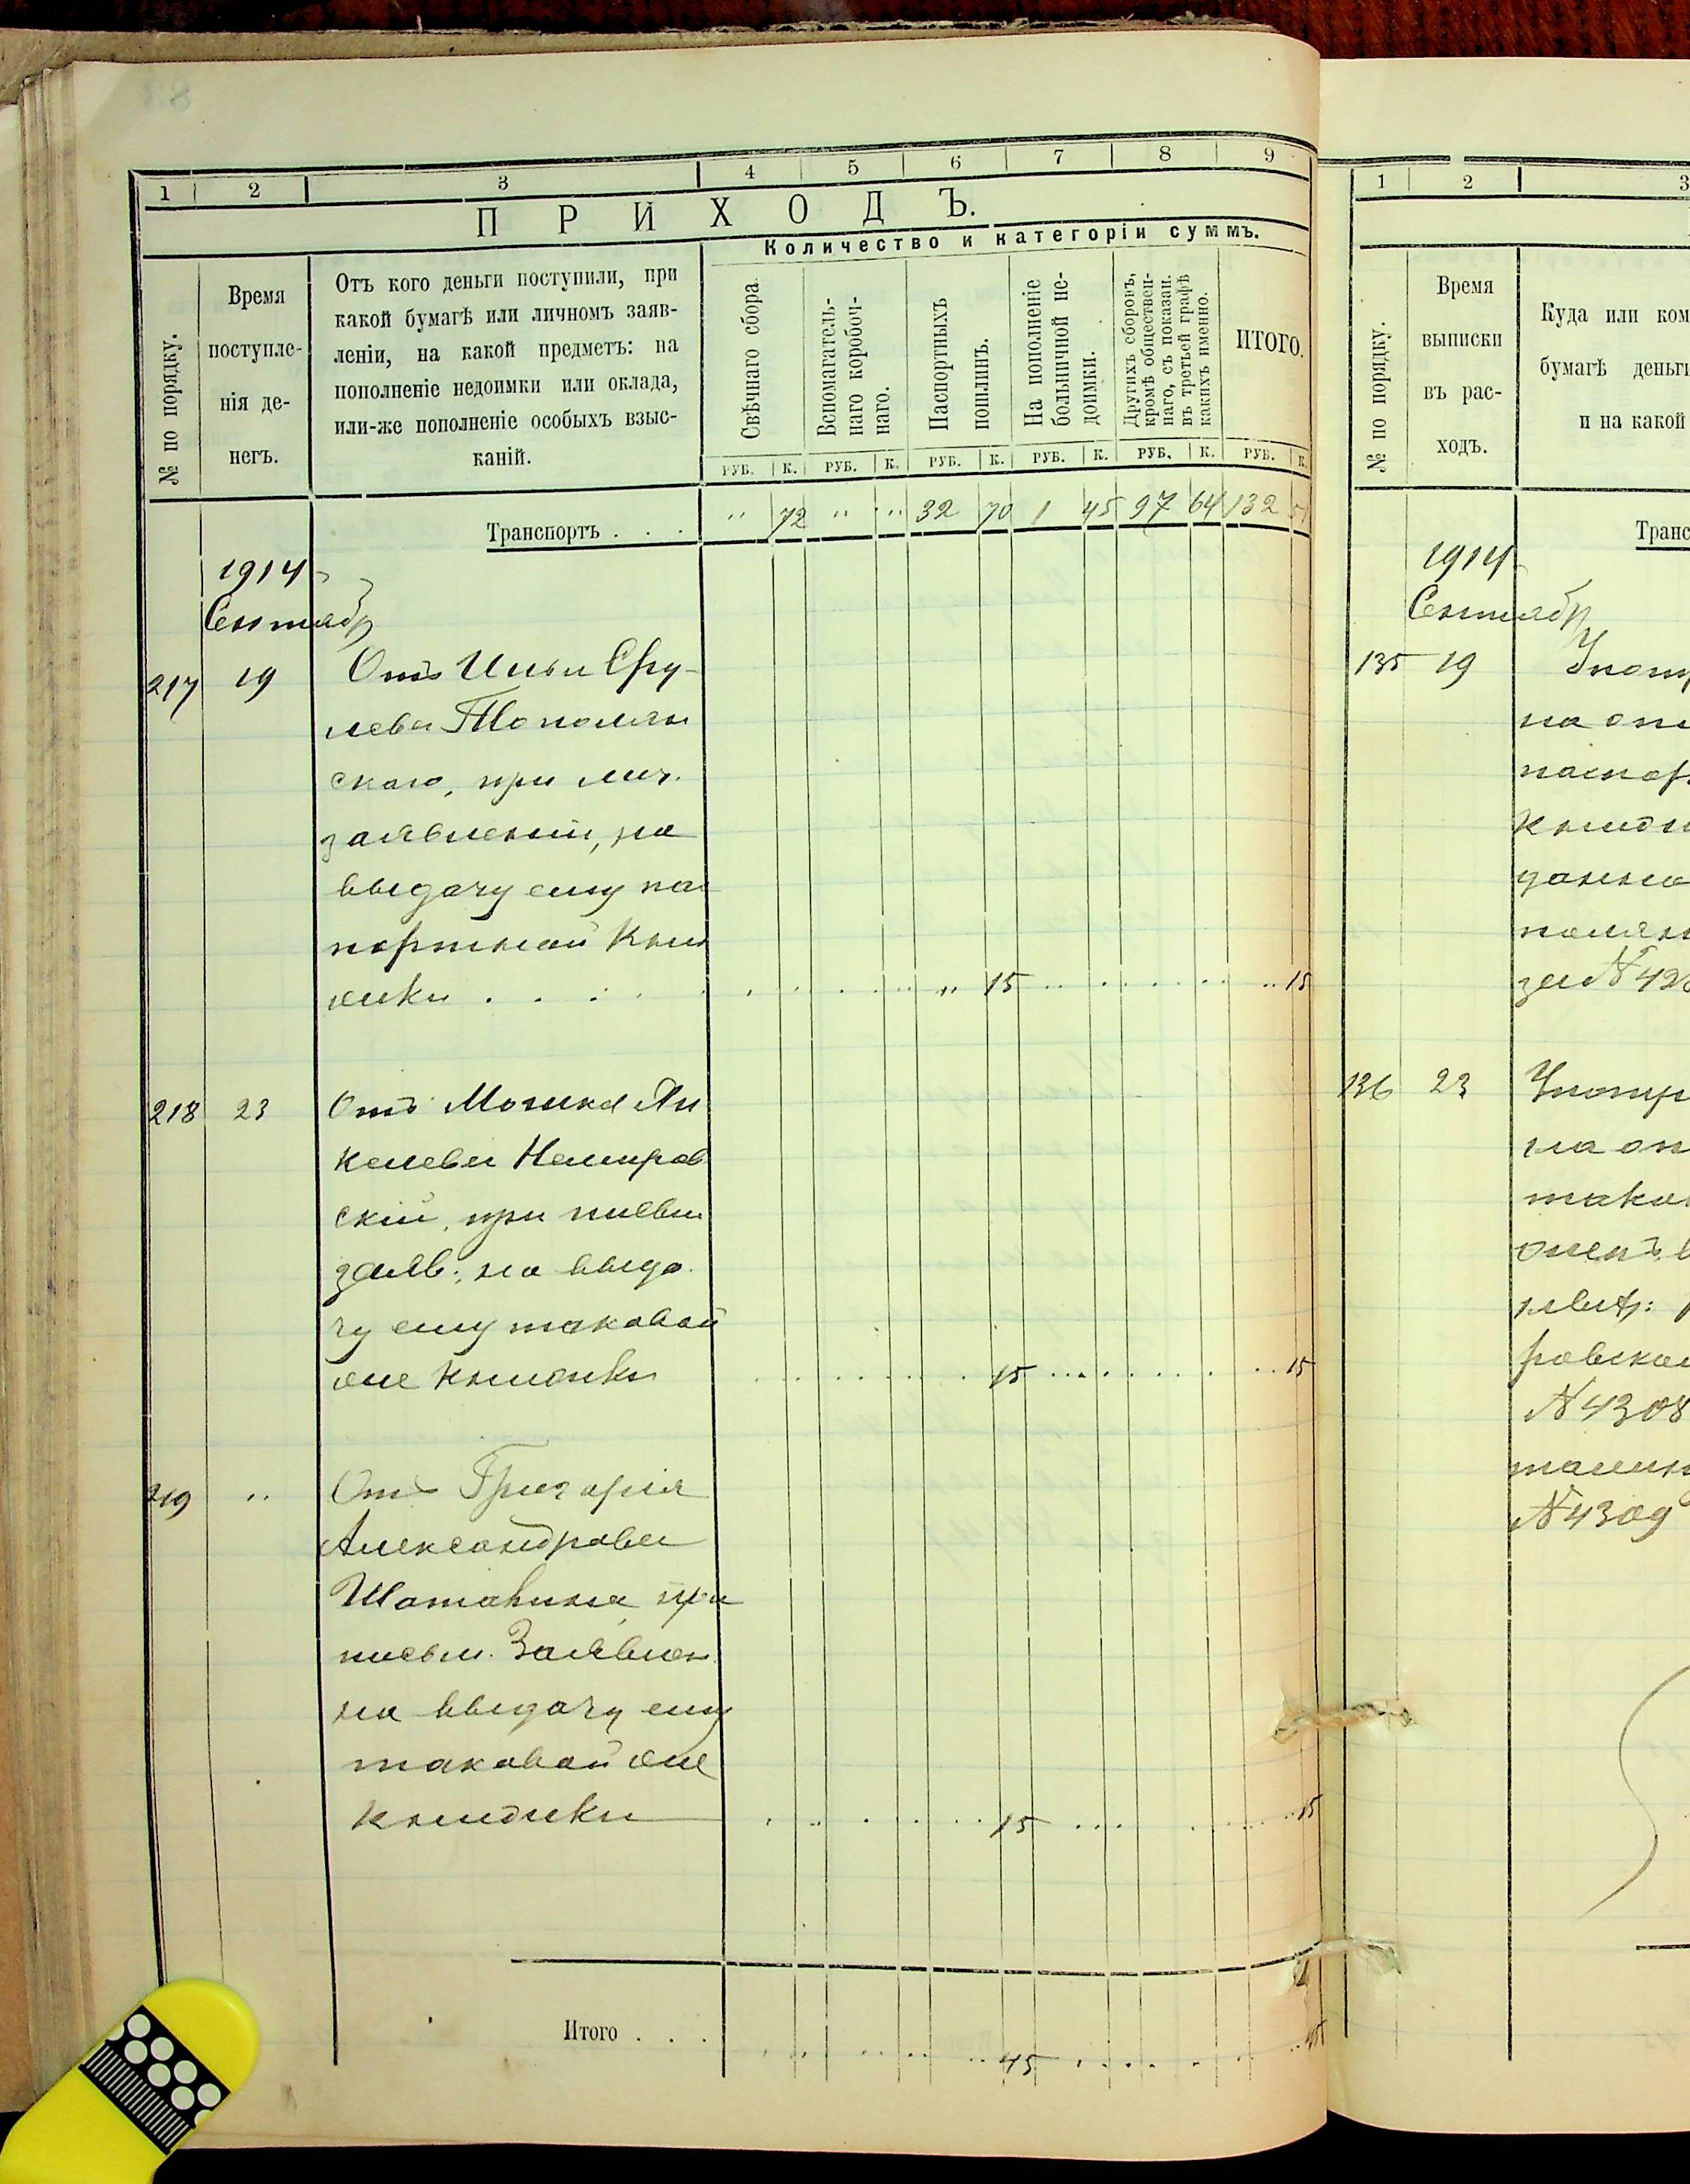 1 2 3 4 5 6 7 8 9
ПРИХОДЪ.
Количество и категоріи суммъ.
№ по порядку.
Время
поступле-
нія де-
негъ.
Отъ кого деньги поступили, при
какой бумагѣ или личномъ заяв-
леніи, на какой предметъ: на
пополненіе недоимки или оклада,
или-же пополненіе особыхъ взыс-
каній.
Свѣчнаго сбора.
Вспомагатель-
наго коробоч-
наго.
Паспортныхъ
пошлинъ.
На пополненіе
больничной не-
доимки.
Другихъ сборовъ,
кромѣ обществен-
наго, съ показан.
въ третьей графѣ
какихъ именно.
ИТОГО.
РУБ. К. РУБ. К. РУБ. К. РУБ. К. РУБ. К. РУБ. К.
Транспортъ . . . " 72 " " 32 70 1 45 97 64 132 51
1914
Сентябр
217 19 Отъ
Тополян
скаго, при лич.
заявленіи, на
выдачу ему пас
портной кни
жки . . . . " 15 15
218 23 Отъ Мошка Ян
келева Немиров
скій, при письм
заяв: на выда
чу ему таковой
же книжки 15 15
219 " Отъ Григорія
Александрова
при
письм. Заявлен
на выдачу ему
таковой же
книжки 15 15
Итого . . . 45 45
1 2 3
№ по порядку.
Время
выписки
въ рас-
ходъ.
Куда или ком
бумагѣ деньги
и на какой
Транс
1914
Сентябр
135 19 Употр
на опл
паспор
книжк
данно
полян
за № 428
136 23 Употр
на оп
таков
квит:
ровском
№ 4308
№ 4309